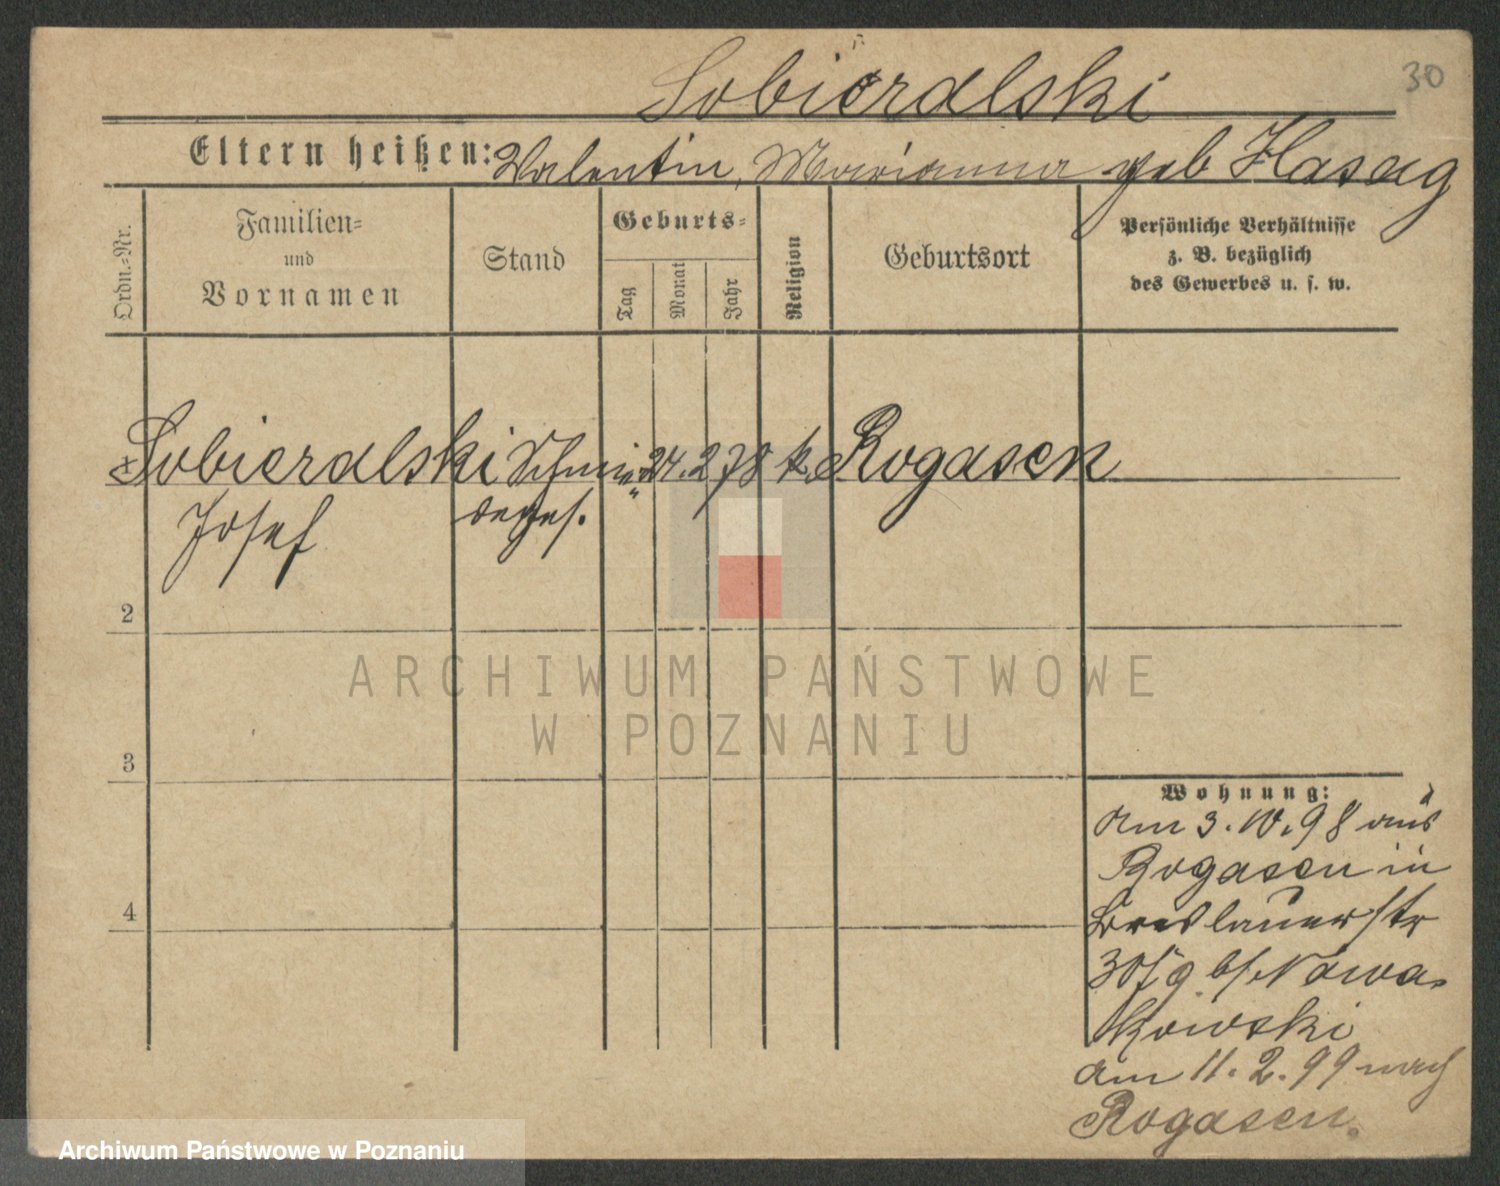 30
Sobieralski
Eltern heißen: Valentin, Marianna geb Hasag
Ordn.-Nr.
Familien-
und
Vornamen
Stand
Geburts-
Tag
Monat
Jahr
Religion
Geburtsort
Persönliche Verhältnisse
z. B. bezüglich
des Gewerbes u. s. w.
Sobieralski Schmie- 24. 2 78 k. Rogasen
Josef deges.
2
3
4
Wohnung:
am 3. IV. 98 aus
Rogasen in
Breslauerstr
30/9 b/ Nowa-
kowski
am 11. 2. 99 nach
Rogasen.
ARCHIWUM PAŃSTWOWE
W POZNANIU
Archiwum Państwowe w Poznaniu